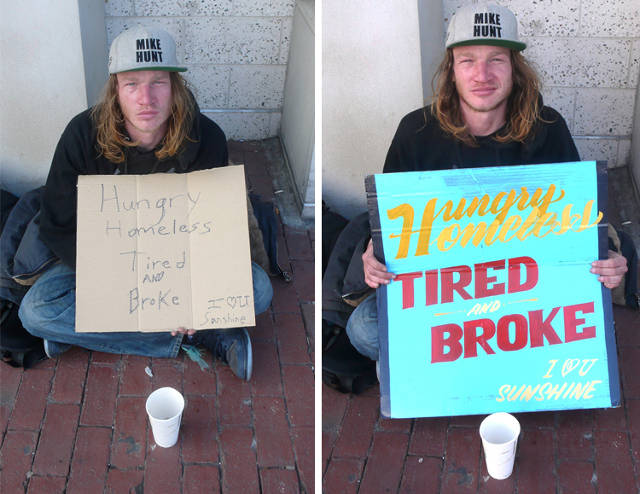 MIKE
HUNT
Hungry
Homeless
Tired
AND
Broke
I ♡ U
Sunshine
MIKE
HUNT
Hungry
Homeless
TIRED
AND
BROKE
I ♡ U
SUNSHINE